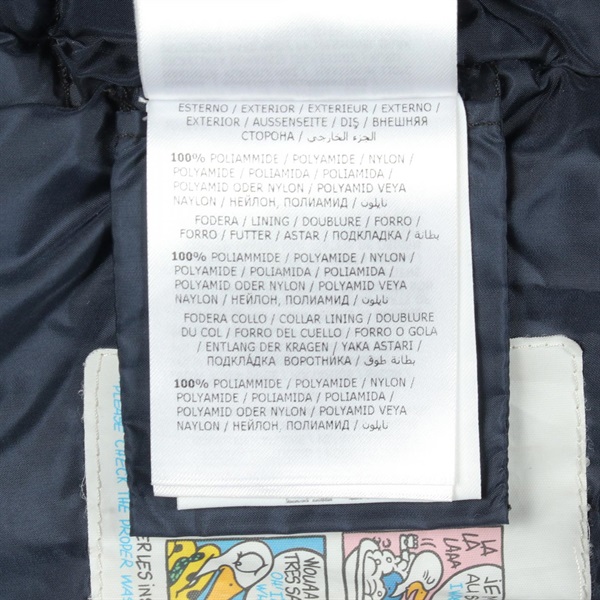 ESTERNO / EXTERIOR / EXTERIEUR / EXTERNO /
EXTERIOR / AUSSENSEITE / DIŞ / ВНЕШНЯЯ
СТОРОНА / الجزء الخارجي
100% POLIAMMIDE / POLYAMIDE / NYLON /
POLYAMIDE / POLIAMIDA / POLIAMIDA /
POLYAMID ODER NYLON / POLYAMID VEYA
NAYLON / НЕЙЛОН, ПОЛИАМИД / نايلون
FODERA / LINING / DOUBLURE / FORRO /
FORRO / FUTTER / ASTAR / ПОДКЛАДКА / بطانة
100% POLIAMMIDE / POLYAMIDE / NYLON /
POLYAMIDE / POLIAMIDA / POLIAMIDA /
POLYAMID ODER NYLON / POLYAMID VEYA
NAYLON / НЕЙЛОН, ПОЛИАМИД / نايلون
FODERA COLLO / COLLAR LINING / DOUBLURE
DU COL / FORRO DEL CUELLO / FORRO O GOLA
/ ENTLANG DER KRAGEN / YAKA ASTARI /
ПОДКЛАДКА ВОРОТНИКА / بطانة طوق
100% POLIAMMIDE / POLYAMIDE / NYLON /
POLYAMIDE / POLIAMIDA / POLIAMIDA /
POLYAMID ODER NYLON / POLYAMID VEYA
NAYLON / НЕЙЛОН, ПОЛИАМИД / نايلون
PLEASE CHECK THE PROPER WAS
ER LES INS
WOUAA
TRES SA
LA
LA
LAAA
JE
AUS